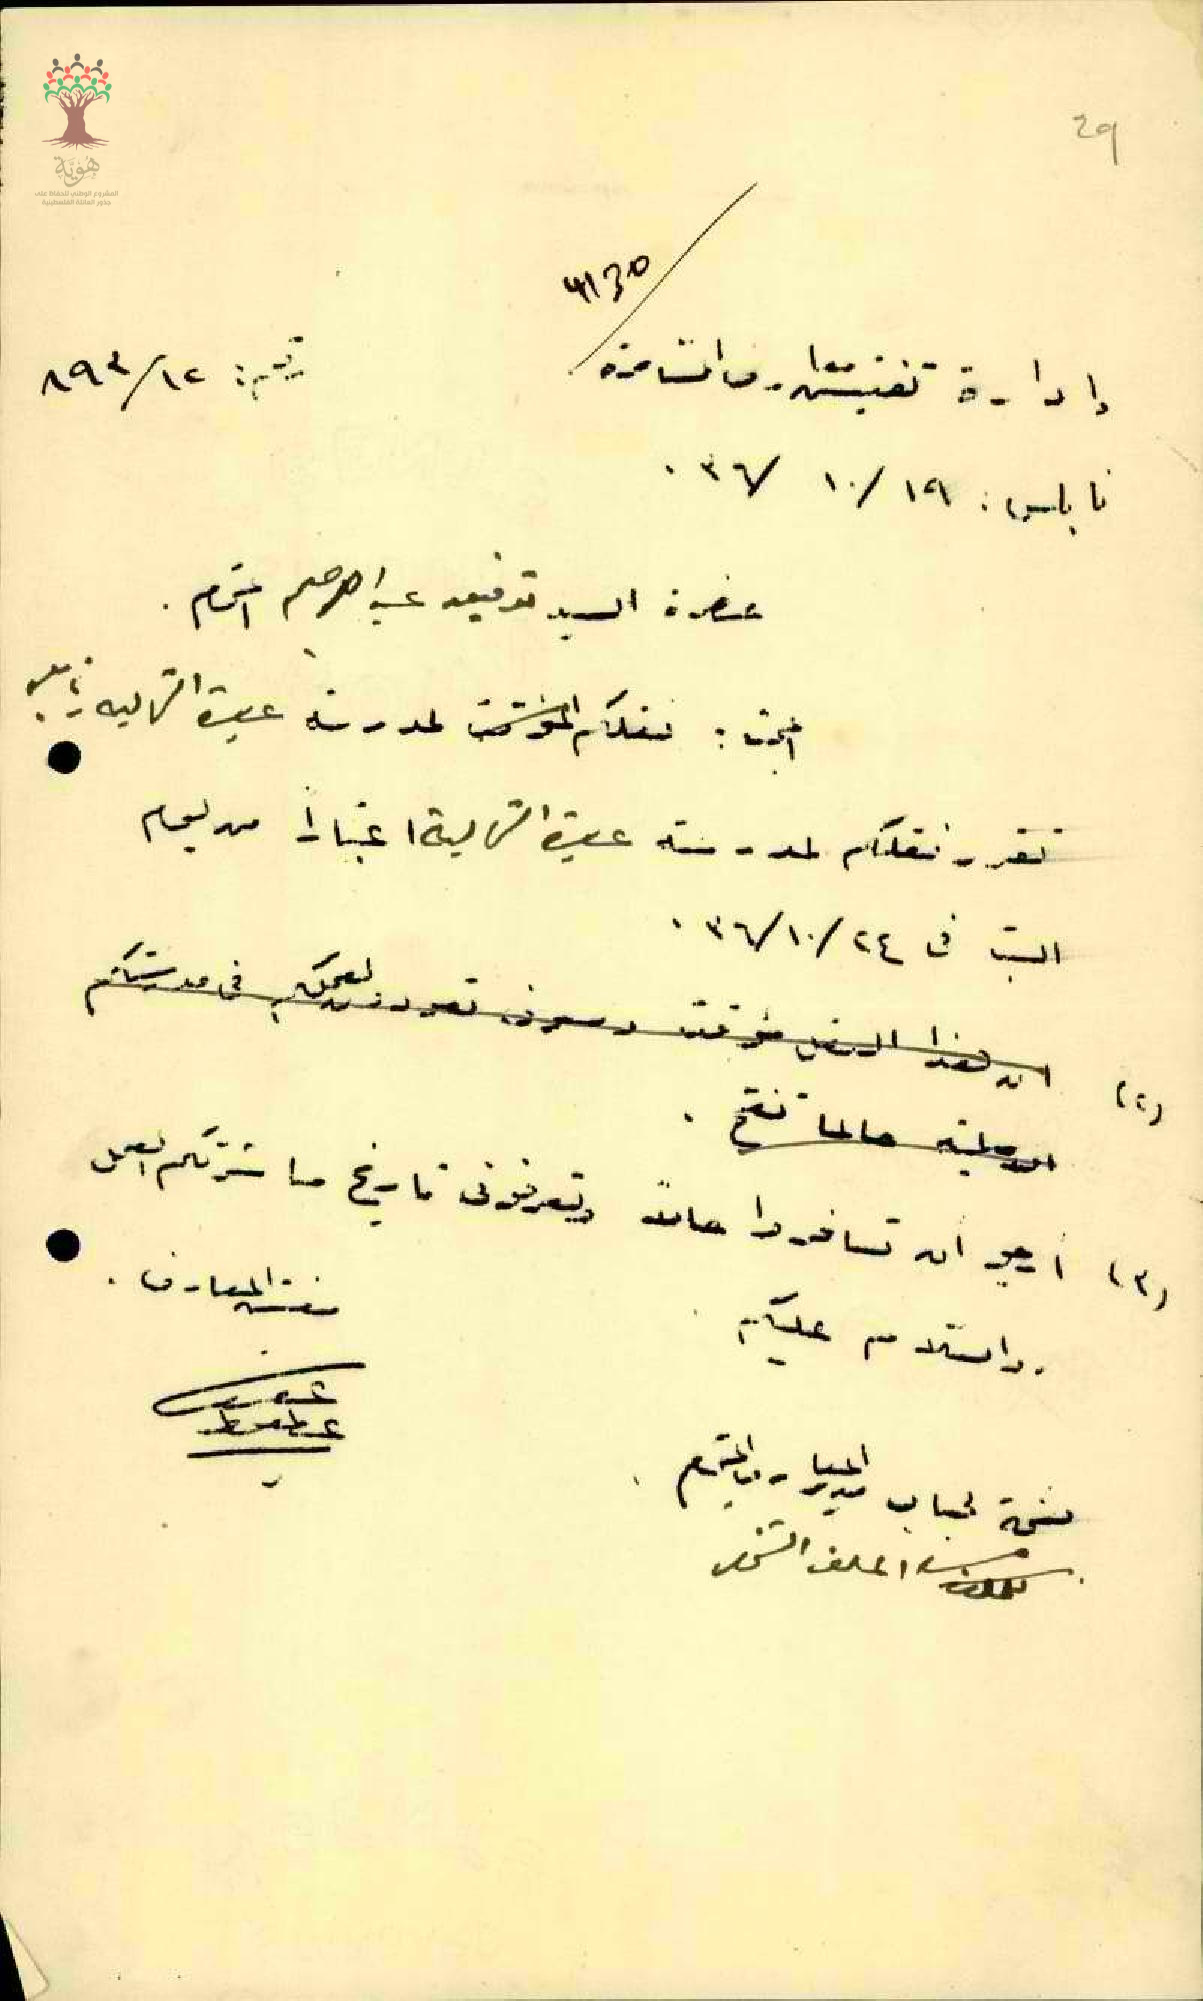 هوية
المشروع الوطني للحفاظ على
جذور العائلة الفلسطينية
29
4130
إدارة تفتيش معارف السامرة
رقم: ٨٩٣/١٢
نابلس: ١٩/ ١٠/ ٣٦.
حضرة السيد توفيق عبد الرحيم المحترم.
البحث: نقلكم المؤقت لمدرسة عصيرة الشمالية نابلس
تقرر نقلكم لمدرسة عصيرة الشمالية اعتبارا من يوم
السبت في ٢٤/ ١٠/ ٣٦.
(٢) ان هذا النقل مؤقت وسوف تعودون لعملكم في مدرستكم
الاصلية حالما تفتح.
(٣) أرجو أن تسافروا حالاً وتعرفوني تاريخ مباشرتكم العمل
والسلام عليكم
مفتش المعارف.
نسخة لجناب مدير المعارف المحترم.
الملف الشخصي